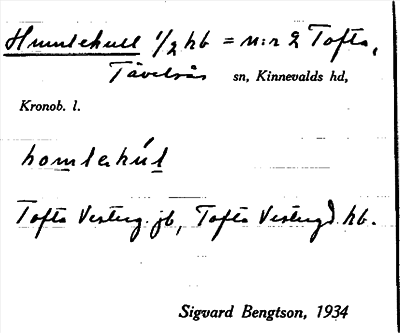 Humlehull 1/2 hb = n:r 2 Tofta,
Tävelsås sn, Kinnevalds hd,
Kronob. l.
homlehúl
Tofta Västerg. jb, Tofta Västergd hb.
Sigvard Bengtson, 1934